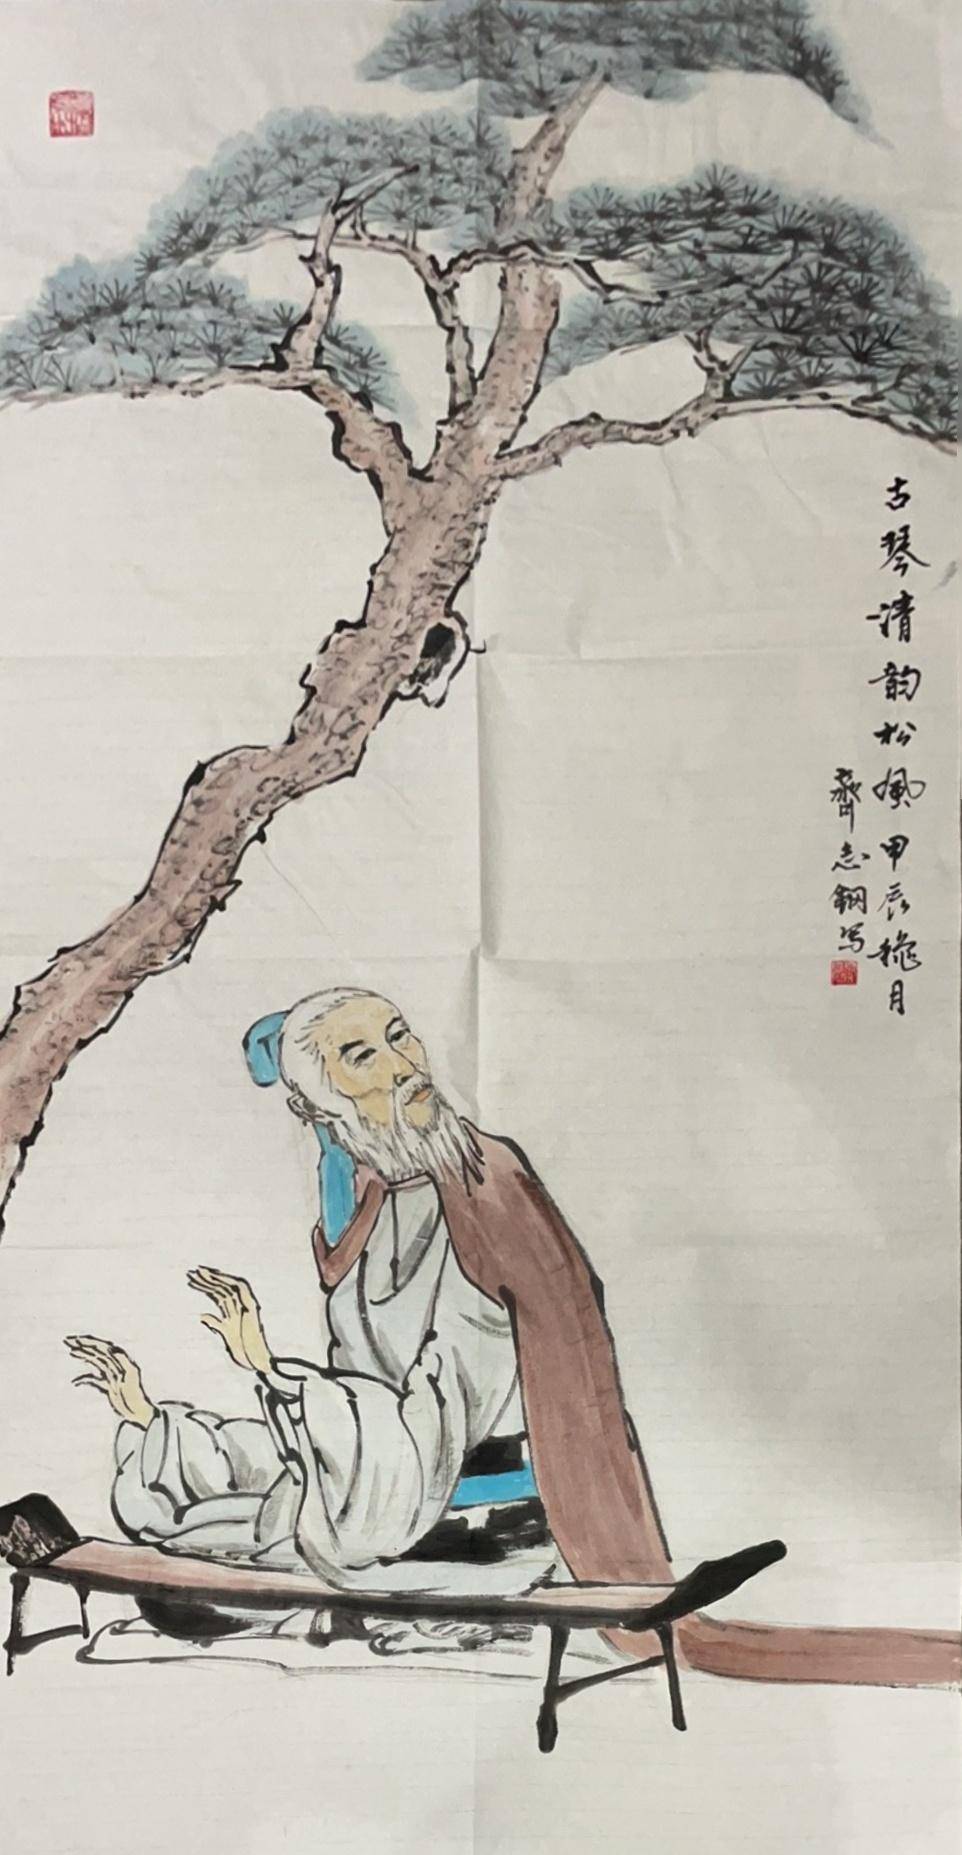 古琴清韵松風甲辰穐月
齊志鋼写